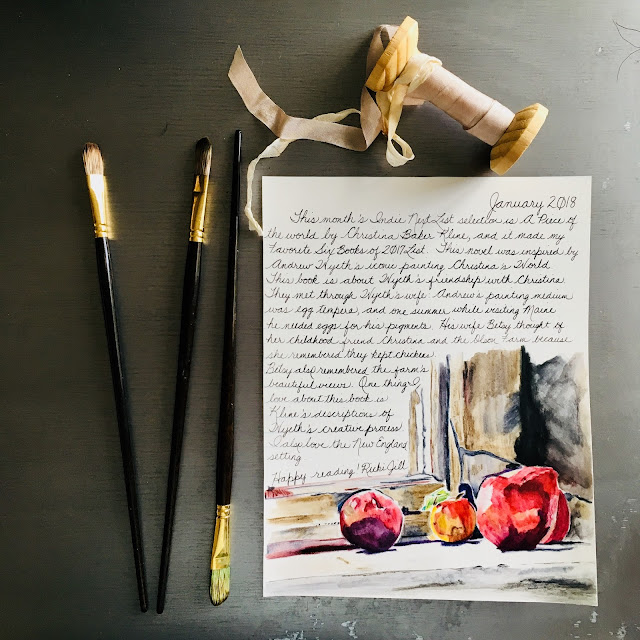 January 2018
This month's Indie Next List selection is A Piece of
the world by Christina Baker Kline, and it made my
Favorite Six Books of 2017 List. This novel was inspired by
Andrew Wyeth's iconic painting Christina's World.
This book is about Wyeth's friendship with Christina.
They met through Wyeth's wife. Andrew's painting medium
was egg tempera, and one summer while visiting Maine
he needed eggs for his pigments. His wife Betsy thought of
her childhood friend Christina and the Olson Farm because
she remembered they kept chickens.
Betsy also remembered the farm's
beautiful views. One thing I
love about this book is
Kline's descriptions of
Wyeth's creative process.
I also love the New England
setting.
Happy reading! Ricki Jill